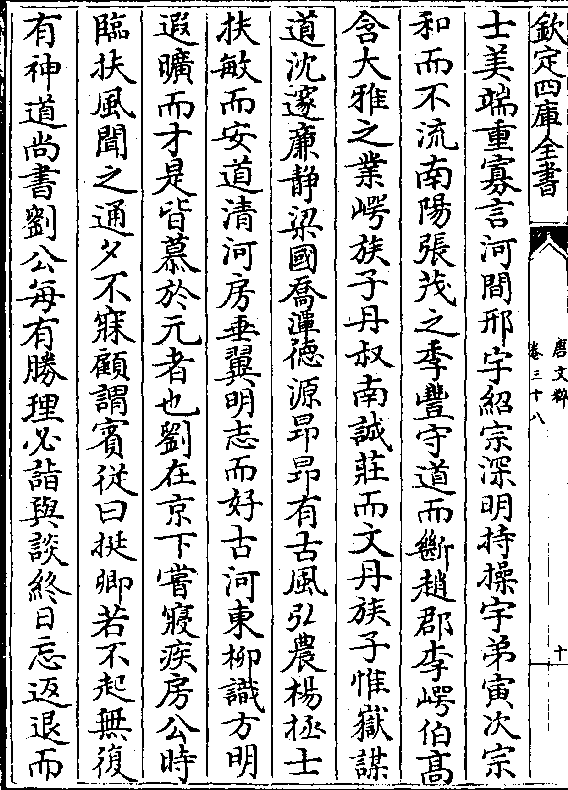 欽定四庫全書
唐文粹
卷三十八
十
士美端重寡言河間邢宇紹宗深明持操宇弟寅次宗
和而不流南陽張茂之季豐守道而斷趙郡李崿伯高
含大雅之業崿族子丹叔南誠莊而文丹族子惟嶽謀
道沈邃廉静梁國喬潭徳源昂昂有古風弘農楊拯士
扶敏而安道清河房垂翼明志而好古河東柳識方明
遐曠而才是皆慕於元者也劉在京下嘗寢疾房公時
臨扶風聞之通夕不寐顧謂賓從曰挺卿若不起無復
有神道尚書劉公每有勝理必詣與談終日忘返退而